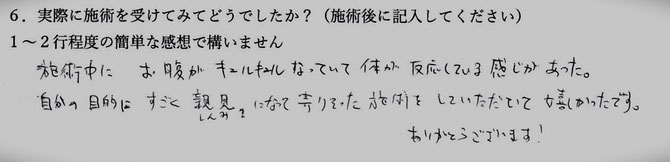 6．実際に施術を受けてみてどうでしたか？（施術後に記入してください）
1～2行程度の簡単な感想で構いません
施術中に お腹が キュルキュル なっていて 体が 反応している 感じが あった。
自分の 目的に すごく 親見？になって 寄りそった 施術を していただいて 嬉しかったです。
しんみ
ありがとうございます！